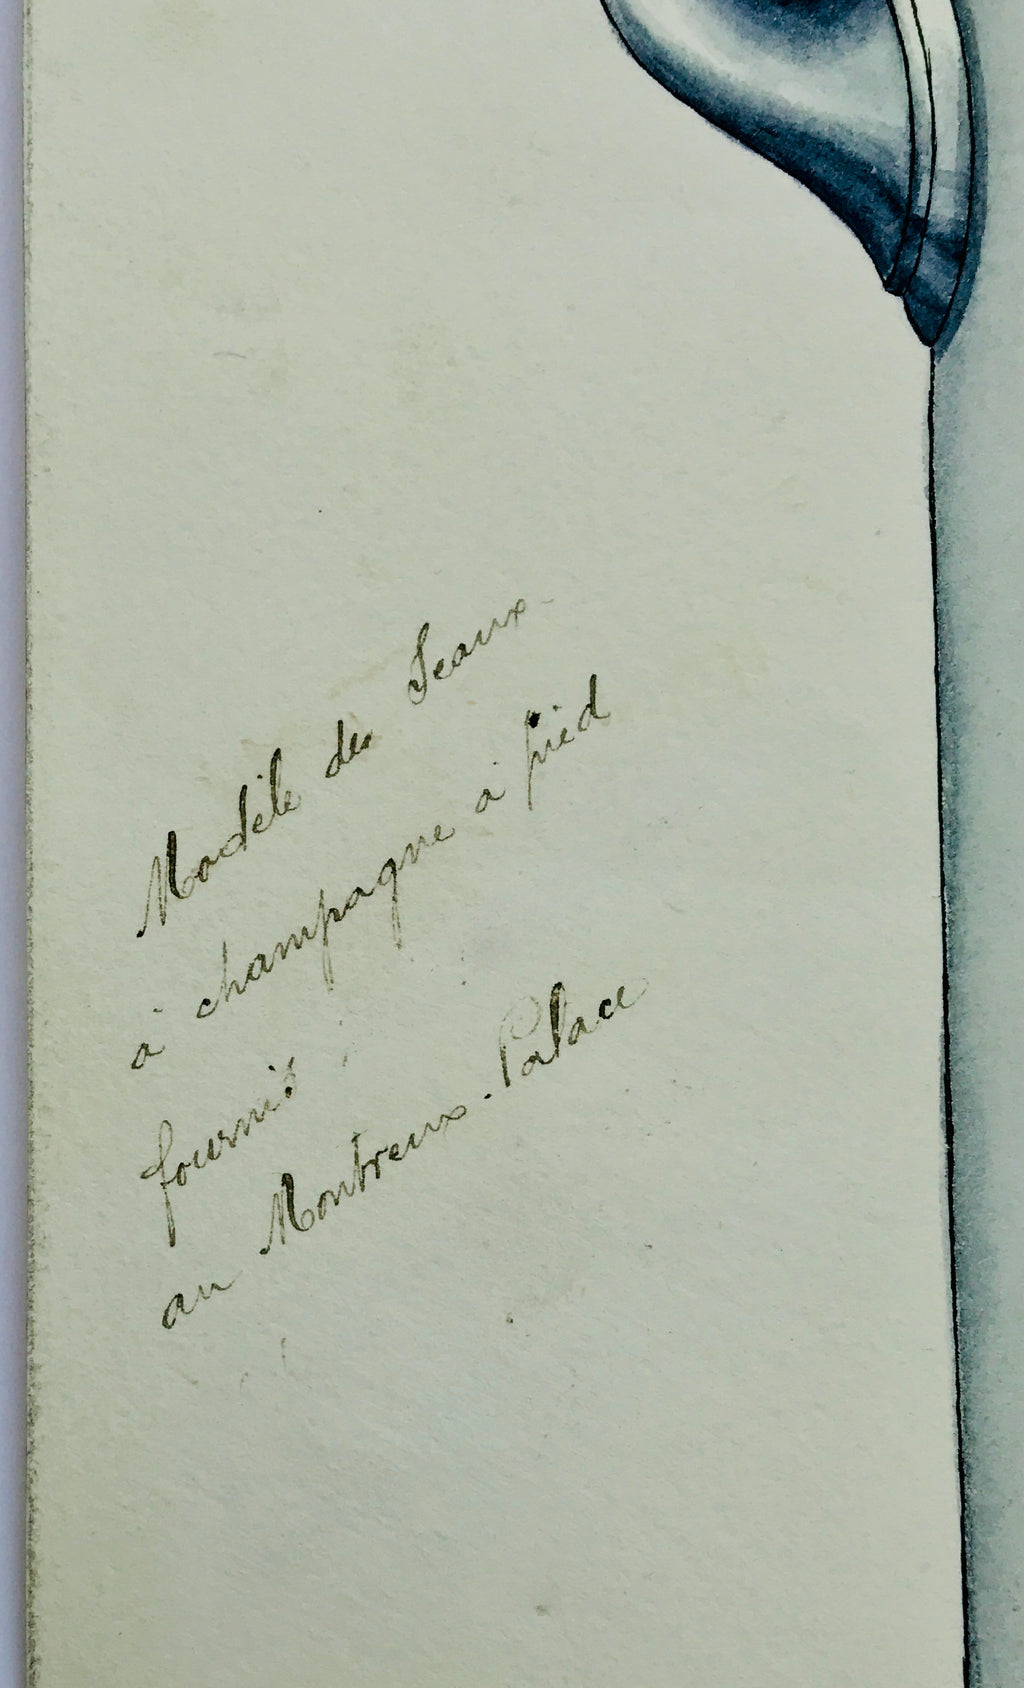 Modèle des Seaux-
à champagne à pied
fournis
au Montreux-Palace